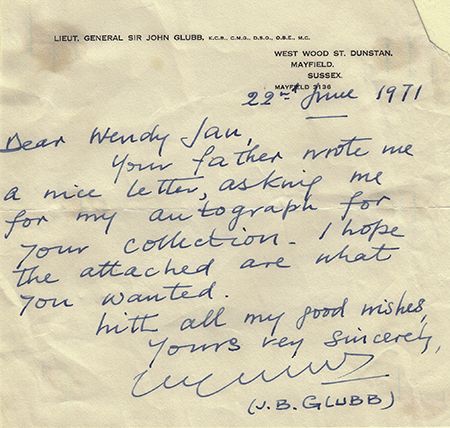 LIEUT. GENERAL SIR JOHN GLUBB, K.C.B., C.M.G., D.S.O., O.B.E., M.C.
WEST WOOD ST. DUNSTAN,
MAYFIELD,
SUSSEX.
MAYFIELD 3136
22nd June 1971
Dear Wendy Jan,
Your father wrote me
a nice letter, asking me
for my autograph for
your collection - I hope
the attached are what
you wanted.
With all my good wishes,
Yours very sincerely,
(J. B. GLUBB)